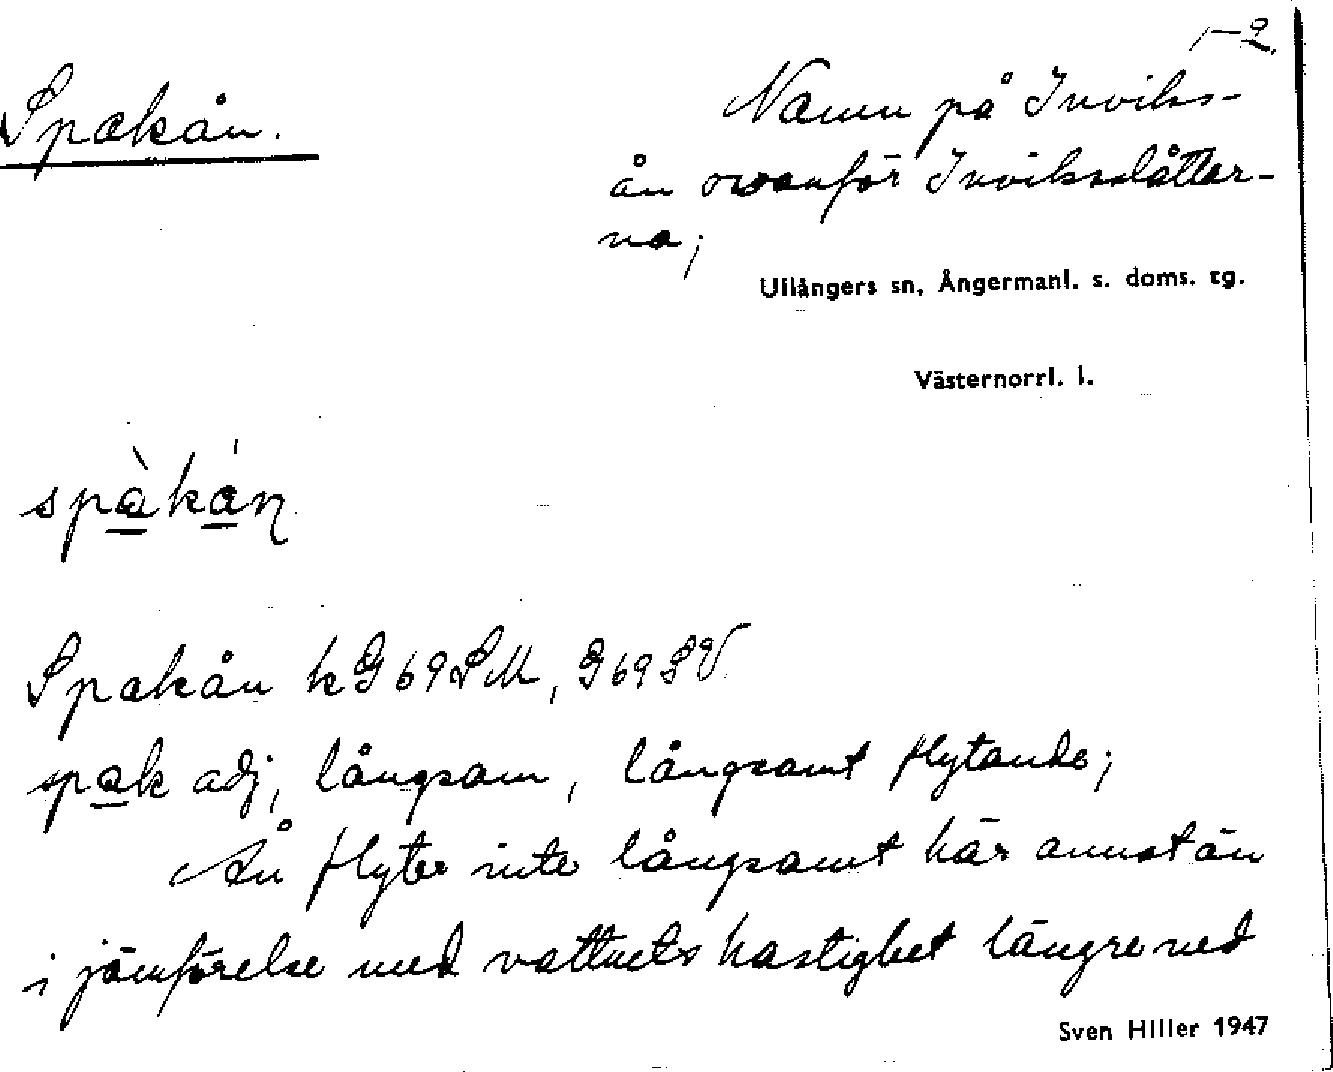 1-2
Spakån.
Namn på Inviks-
ån ovanför Inviksslåtter-
na;
Ullångers sn, Ångermanl. s. doms. tg.
Västernorrl. l.
spàkán
Spakån kG69SM, G69SV
spak adj, långsam, långsamt flytande;
Ån flyter inte långsamt här annat än
i jämförelse med vattnets hastighet längre ned
Sven Hiller 1947